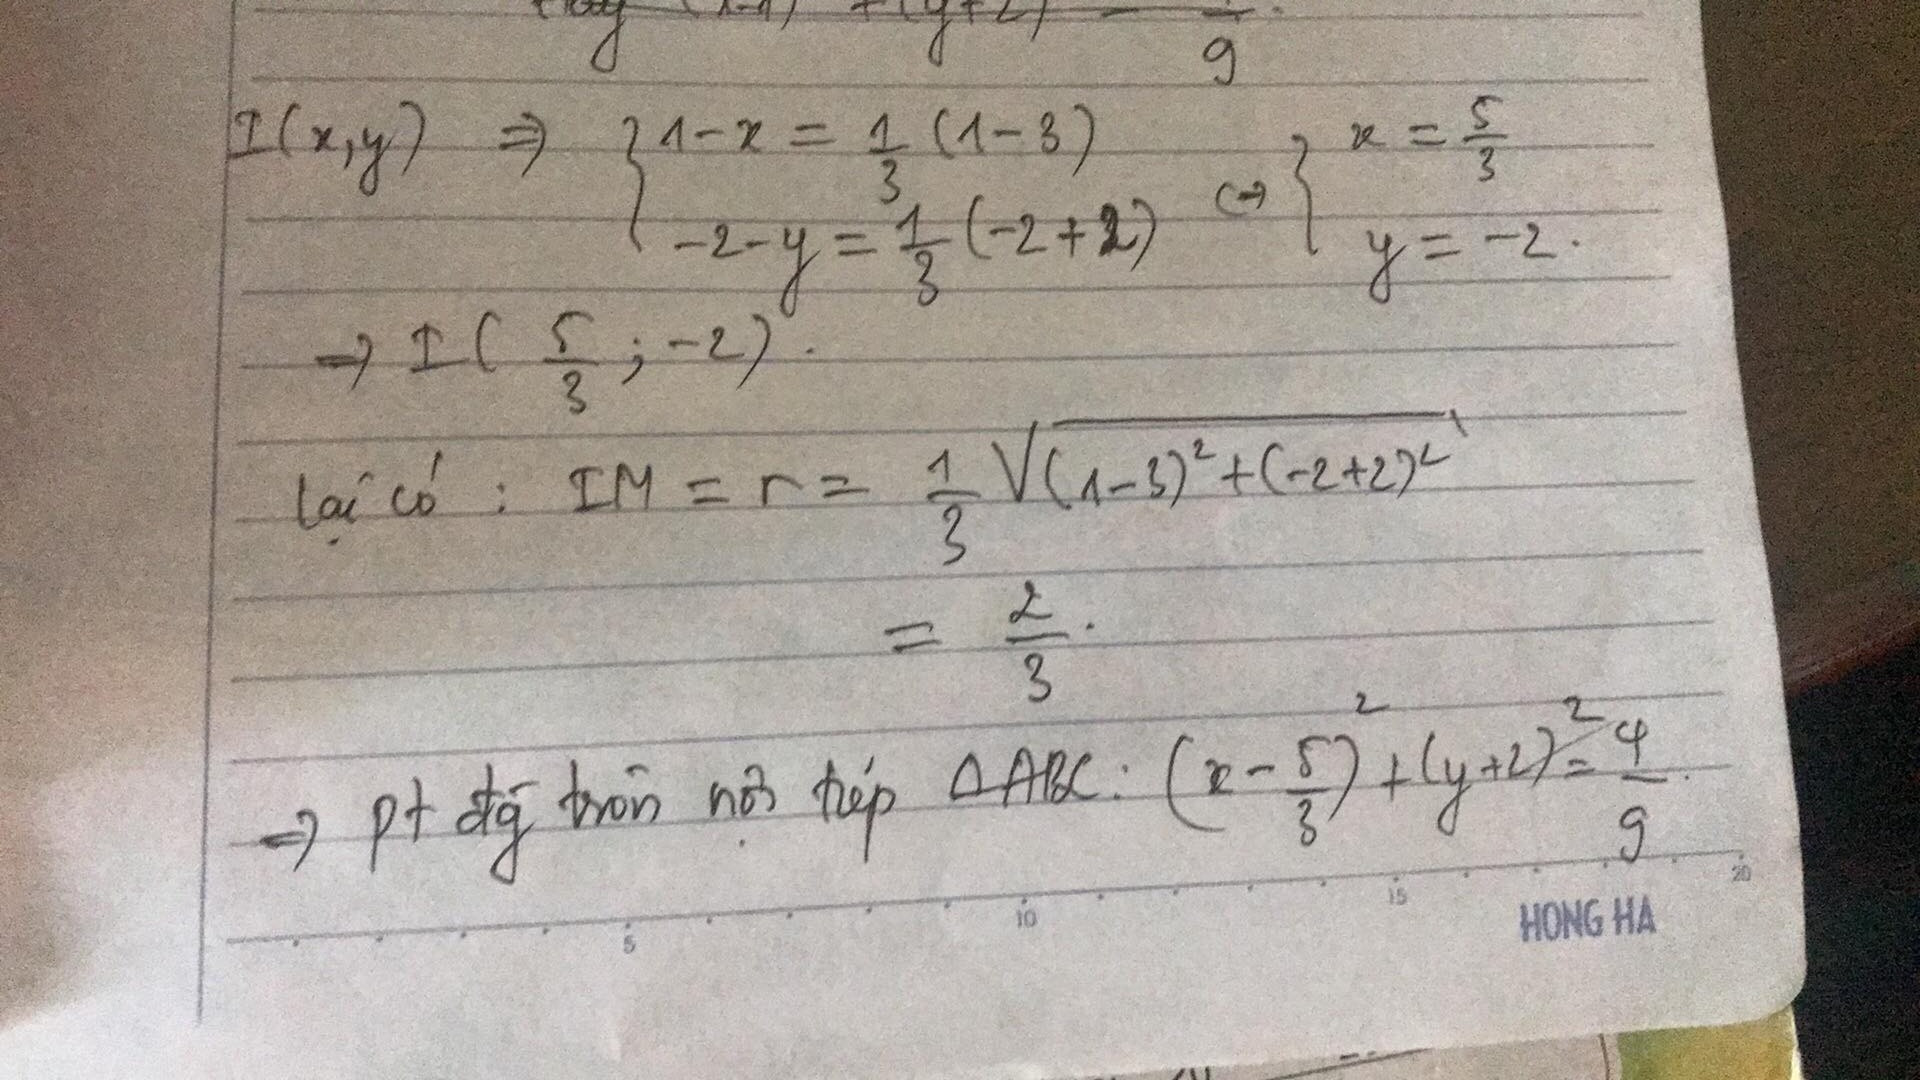 (y+2)
9
I(x,y) => { 1-x = 1/3 (1-3) <=> { x = 5/3
-2-y = 1/3 (-2+2) y = -2.
→ I( 5/3 ; -2).
Lại có : IM = r = 1/3 √(1-3)² + (-2+2)²
= 2/3.
→ pt đg tròn nội tiếp ΔABC: (x - 5/3)² + (y+2)² = 4/9.
5 10 15 20
HONG HA